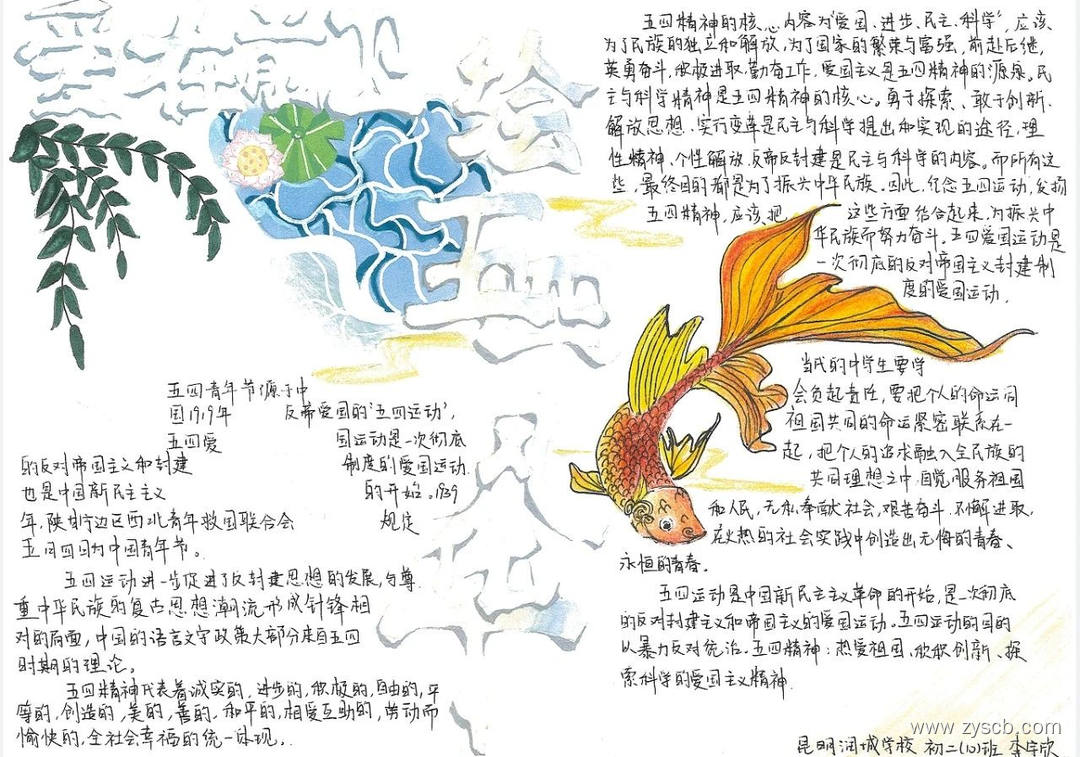 绘
五四
五四精神的核心内容为"爱国、进步、民主、科学",应该
为了民族的独立和解放,为了国家的繁荣与富强,前赴后继,
英勇奋斗,积极进取,勤奋工作。爱国主义是五四精神的源泉。民
主与科学精神是五四精神的核心。勇于探索、敢于创新、
解放思想、实行变革是民主与科学提出和实现的途径,理
性精神、个性解放、反帝反封建是民主与科学的内容。而所有这
些,最终目的都是为了振兴中华民族。因此,纪念五四运动,发扬
五四精神,应该把 这些方面结合起来,为振兴中
华民族而努力奋斗。五四爱国运动是
一次彻底的反对帝国主义封建制
度的爱国运动。
当代的中学生要学
会负起责任,要把个人的命运同
祖国共同的命运紧密联系在一
起,把个人的追求融入全民族的
共同理想之中,自觉服务祖国
和人民,无私奉献社会,艰苦奋斗,不懈进取,
在火热的社会实践中创造出无悔的青春、
永恒的青春。
五四运动是中国新民主主义革命的开始,是一次彻底
的反对封建主义和帝国主义的爱国运动。五四运动的目的
以暴力反对统治。五四精神:热爱祖国、积极创新、探
索科学的爱国主义精神
五四青年节源于中
国1919年 反帝爱国的"五四运动",
五四爱 国运动是一次彻底
的反对帝国主义和封建 制度的爱国运动.
也是中国新民主主义 的开始。1939
年,陕甘宁边区西北青年救国联合会 规定
五月四日为中国青年节。
五四运动进一步促进了反封建思想的发展,与尊
重中华民族的复古思想潮流形成针锋相
对的局面,中国的语言文字政策大部分来自五四
时期的理论。
五四精神代表着诚实的,进步的,积极的,自由的,平
等的,创造的,美的,善的,和平的,相爱互助的,劳动而
愉快的,全社会幸福的统一体现。
昆明润城学校 初二(10)班 李宇欣
www.zyscb.com